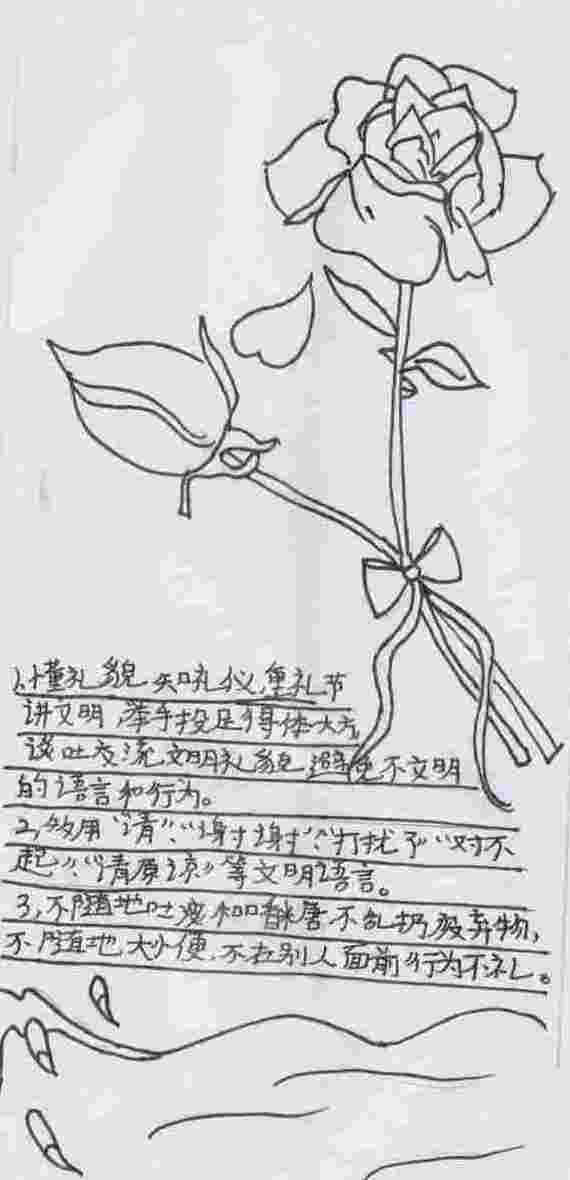 1、懂礼貌 知礼仪,重礼节
讲文明,举手投足得体大方,
谈吐交流文明礼貌,避免不文明
的语言和行为。
2,多用“请”、“谢谢”、“打扰了”“对不
起”、“请原谅”等文明语言。
3,不随地吐痰和口香糖 不乱扔废弃物,
不随地大小便,不在别人面前行为不礼。